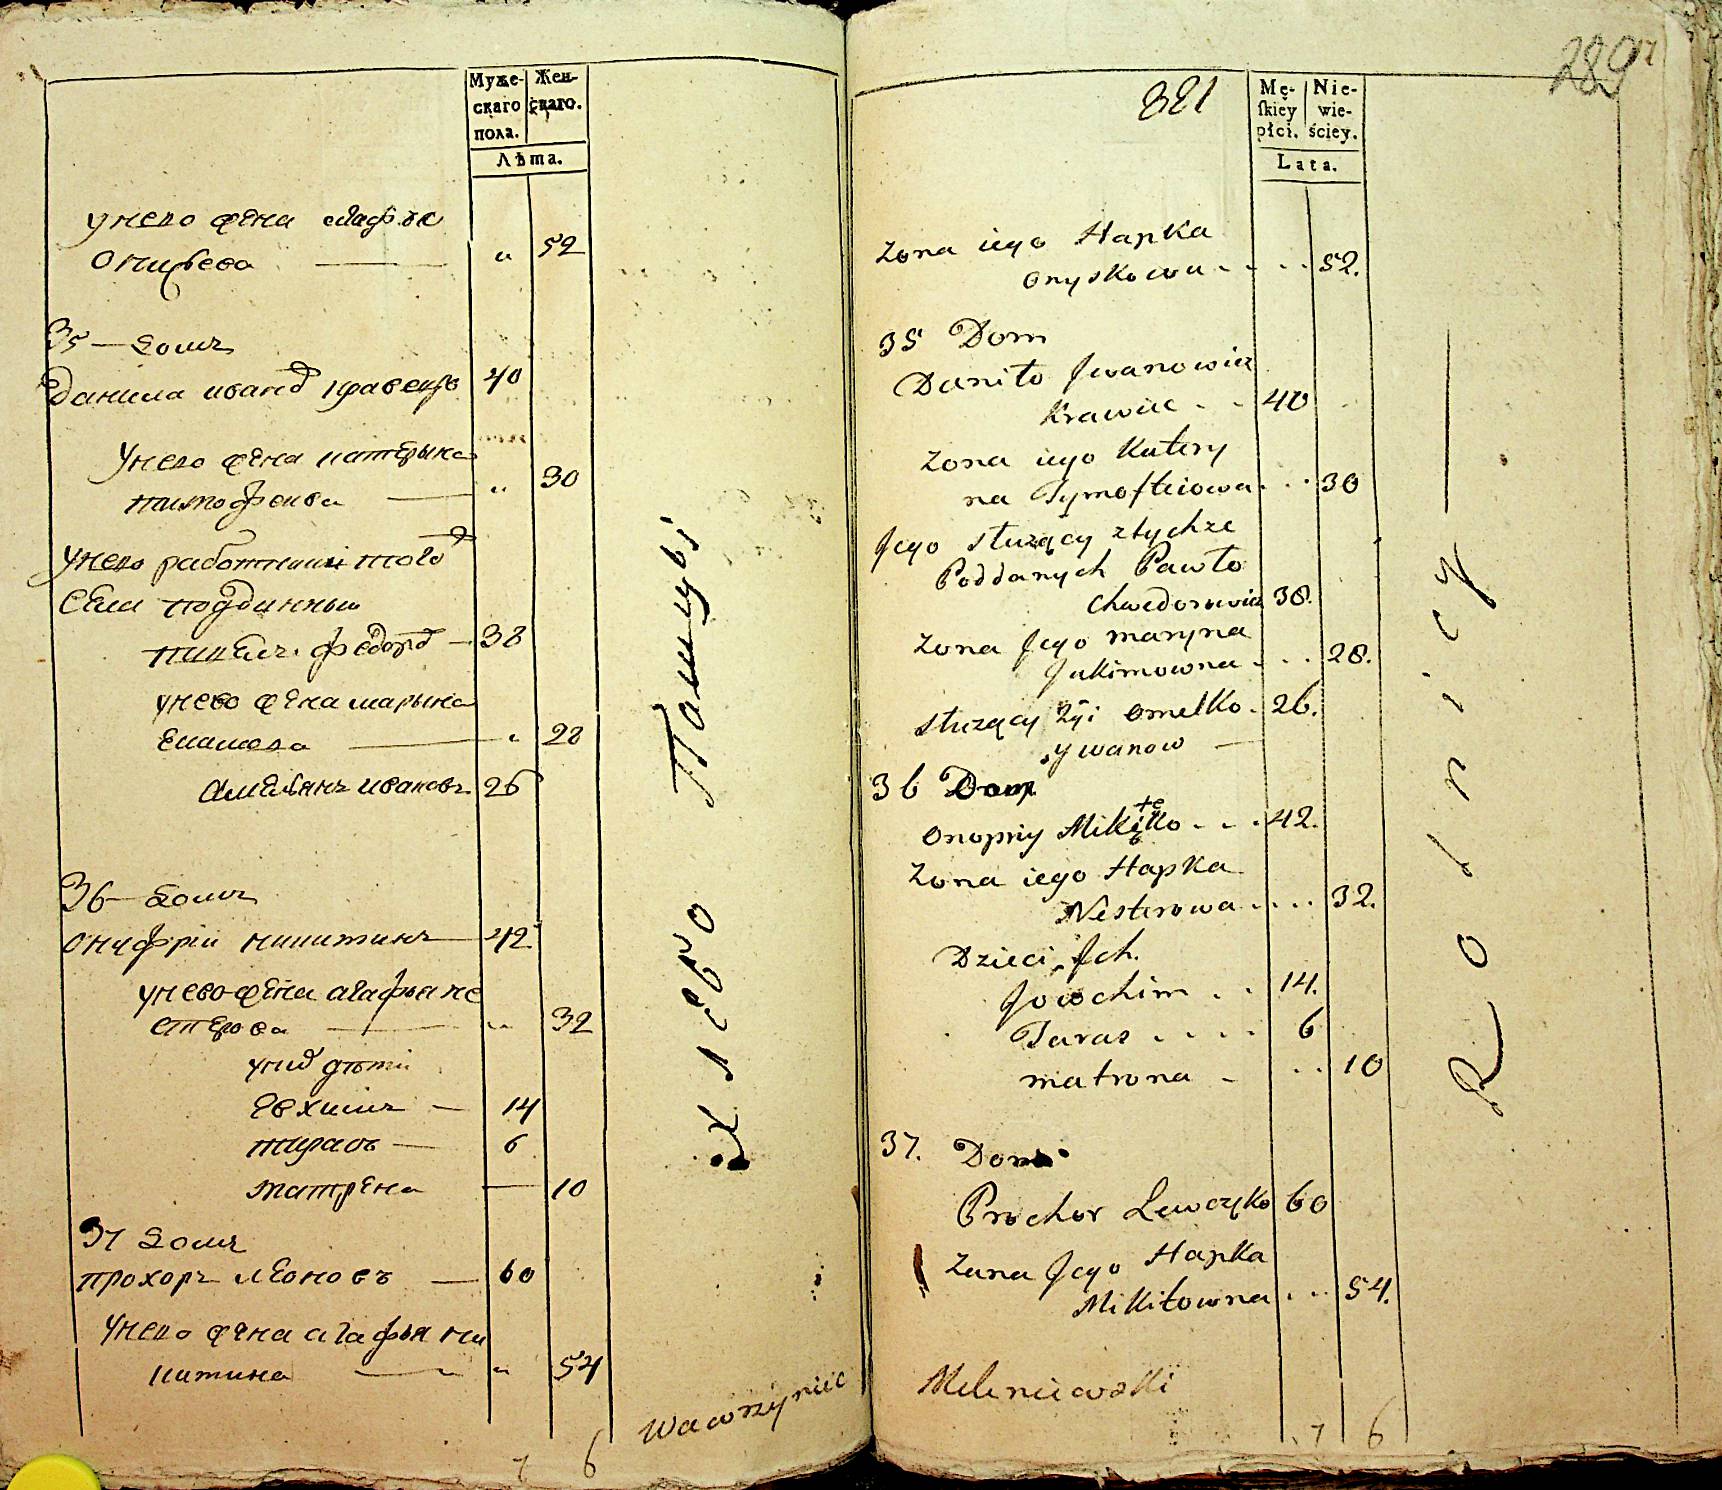 Муже-
скаго
пола.
Жен-
скаго.
Лѣта.
унего жена агафья
52
35 домъ
данила иванов кравецъ 40
унего жена катерына
тимофеива 30
унего работники того
села подданныи
федоров 38
унего жена марына
28
амельянъ ивановъ 26
36 домъ
онуфріи никитинъ 42
унего жена агафья не
стерова 32
уних дѣти
евхимъ 14
тарасъ 6
матрена 10
37 домъ
прохоръ леоновъ 60
унего жена агафья ни
китина 54
7 6
Пашцы
Wawrzyniec
289
321
Mę-
skiey
płci.
Nie-
wie-
ściey.
Lata.
Zona iego Hapka
Onyskowa 52.
35 Dom
Daniło Jwanowicz
Krawiec 40
Zona iego Katery
na Tymofteiowa 30
Jego służący ztychże
Poddanych Pawło
Chwedorowicz 38.
Zona Jego maryna
Jukimowna 28.
służący 2gi Omelko 26.
ywanow
36 Dom
Onopriy 42.
Zona iego Hapka
Nesterowa 32.
Dzieci Jch.
Jowchim 14.
Taras 6
matrona 10
37. Dom
Prochor Lewczyko 60
Zona Jego Hapka
Mikitowna 54.
Meleniewski
7 6
Rolnicy